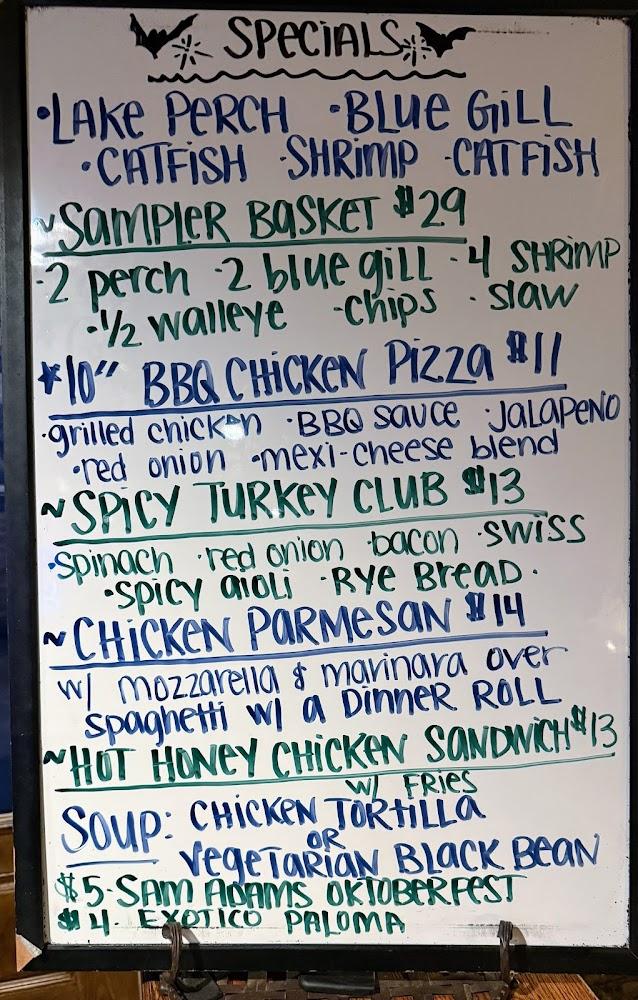 SPECIALS
•LAKE PERCH •BLUE GILL
•CATFISH •SHRIMP •CATFISH
~SAMPLER BASKET $29
•2 perch •2 blue gill •4 SHRIMP
•1/2 walleye •chips •slaw
*10" BBQ CHICKEN PIZZA $11
•grilled chicken •BBQ SAUCE •JALAPENO
•red onion •mexi-cheese blend
~SPICY TURKEY CLUB $13
•spinach •red onion bacon •SWISS
•SPICY aioli •RYE BREAD•
~CHICKEN PARMESAN $14
w/ mozzarella & marinara over
spaghetti w/ a DINNER ROLL
~HOT HONEY CHICKEN SANDWICH $13
w/ FRIES
SOUP: CHICKEN TORTILLA
OR
VEGETARIAN BLACK BEAN
$5-SAM ADAMS OKTOBERFEST
$4- EXOTICO PALOMA